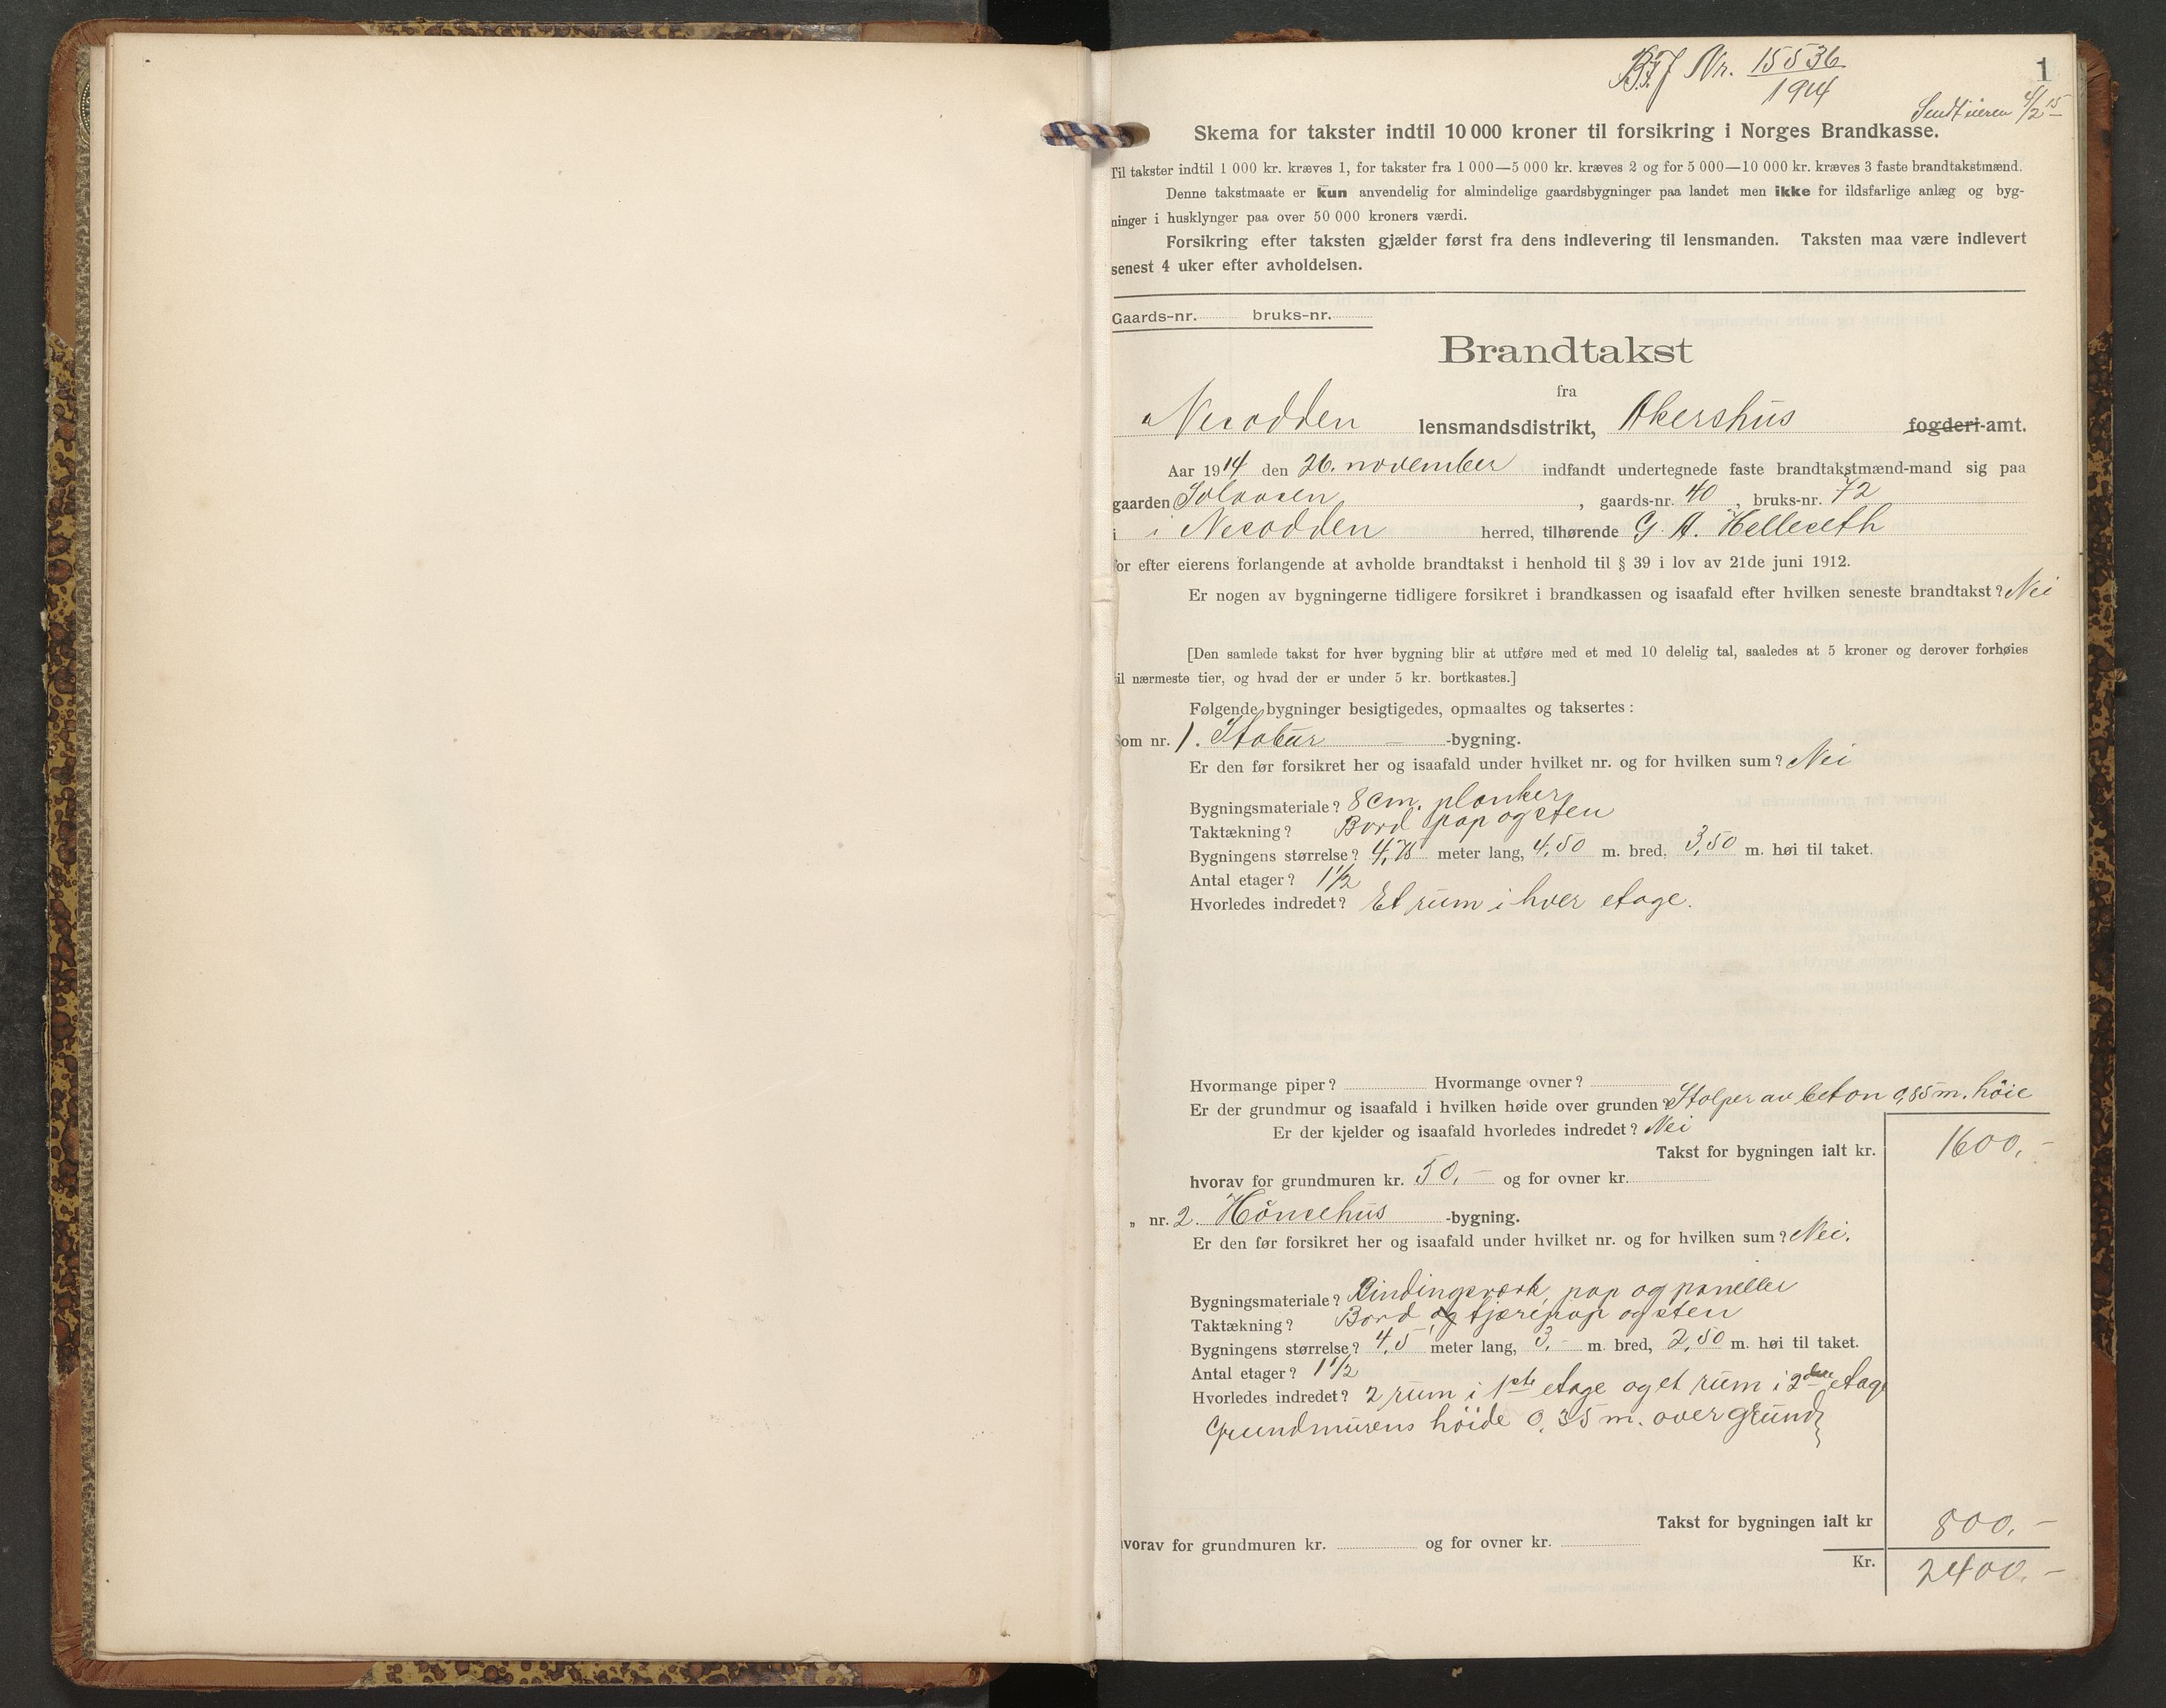 B.F.J Nr. 15536
1914
1
Sendt eieren 4/2 15
Skema for takster indtil 10 000 kroner til forsikring i Norges Brandkasse.
Til takster indtil 1 000 kr. kræves 1, for takster fra 1 000—5 000 kr. kræves 2 og for 5 000—10 000 kr. kræves 3 faste brandtakstmænd.
Denne takstmaate er kun anvendelig for almindelige gaardsbygninger paa landet men ikke for ildsfarlige anlæg og byg-
ninger i husklynger paa over 50 000 kroners værdi.
Forsikring efter taksten gjælder først fra dens indlevering til lensmanden. Taksten maa være indlevert
senest 4 uker efter avholdelsen.
Gaards-nr. bruks-nr.
Brandtakst
fra
Nesodden lensmandsdistrikt, Akershus fogderi-amt.
Aar 1914 den 26. november indfandt undertegnede faste brandtakstmænd-mand sig paa
gaarden Solaasen, gaards-nr. 40, bruks-nr. 72
i i Nesodden herred, tilhørende G. A. Helleseth
for efter eierens forlangende at avholde brandtakst i henhold til § 39 i lov av 21de juni 1912.
Er nogen av bygningerne tidligere forsikret i brandkassen og isaafald efter hvilken seneste brandtakst? Nei
[Den samlede takst for hver bygning blir at utføre med et med 10 delelig tal, saaledes at 5 kroner og derover forhøies
til nærmeste tier, og hvad der er under 5 kr. bortkastes.]
Følgende bygninger besigtigedes, opmaaltes og taksertes:
Som nr. 1. Stabur — -bygning.
Er den før forsikret her og isaafald under hvilket nr. og for hvilken sum? Nei
Bygningsmateriale? 8 cm. planker
Taktækning? Bord pap og sten
Bygningens størrelse? 4,75 meter lang, 4,50 m. bred, 3,50 m. høi til taket.
Antal etager? 1 1/2
Hvorledes indredet? Et rum i hver etage.
Hvormange piper? Hvormange ovner?
Er der grundmur og isaafald i hvilken høide over grunden? Stolper av beton 0,85 m. höie
Er der kjelder og isaafald hvorledes indredet? Nei
Takst for bygningen ialt kr. 1600,-
hvorav for grundmuren kr. 50,- og for ovner kr.
„ nr. 2. Hönsehus -bygning.
Er den før forsikret her og isaafald under hvilket nr. og for hvilken sum? Nei.
Bygningsmateriale? Bindingsverk, pap og paneller
Taktækning? Bord og tjærepap og sten
Bygningens størrelse? 4,5 meter lang, 3,- m. bred, 2,50 m. høi til taket.
Antal etager? 1 1/2
Hvorledes indredet? 2 rum i 1ste etage og et rum i 2den etage
Grundmurens höide 0,35 m. over grund
Takst for bygningen ialt kr 800,-
hvorav for grundmuren kr. og for ovner kr.
Kr. 2400,-